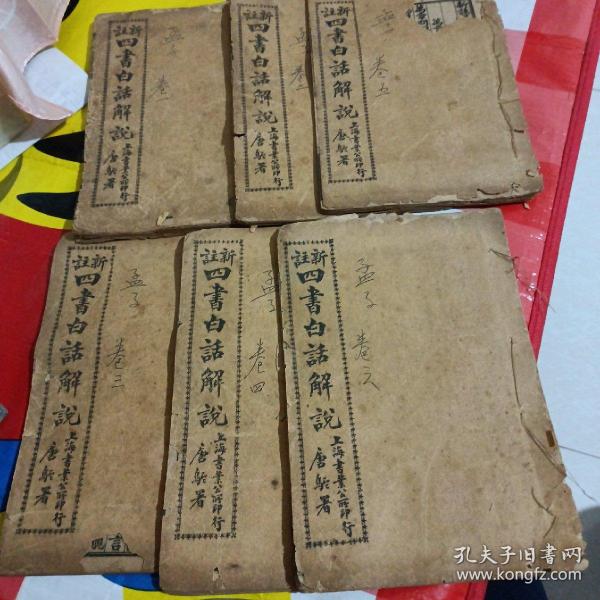 新註四書白話解說
上海書業公所印行
唐駝署
孟子
卷一
新註四書白話解說
上海書業公所印行
唐駝署
孟子
卷二
新註四書白話解說
上海書業公所印行
唐駝署
孟子
卷五
新註四書白話解說
上海書業公所印行
唐駝署
孟子
卷三
新註四書白話解說
上海書業公所印行
唐駝署
孟子
卷四
新註四書白話解說
上海書業公所印行
唐駝署
孟子
卷六
孔夫子旧书网
www.kongfz.com